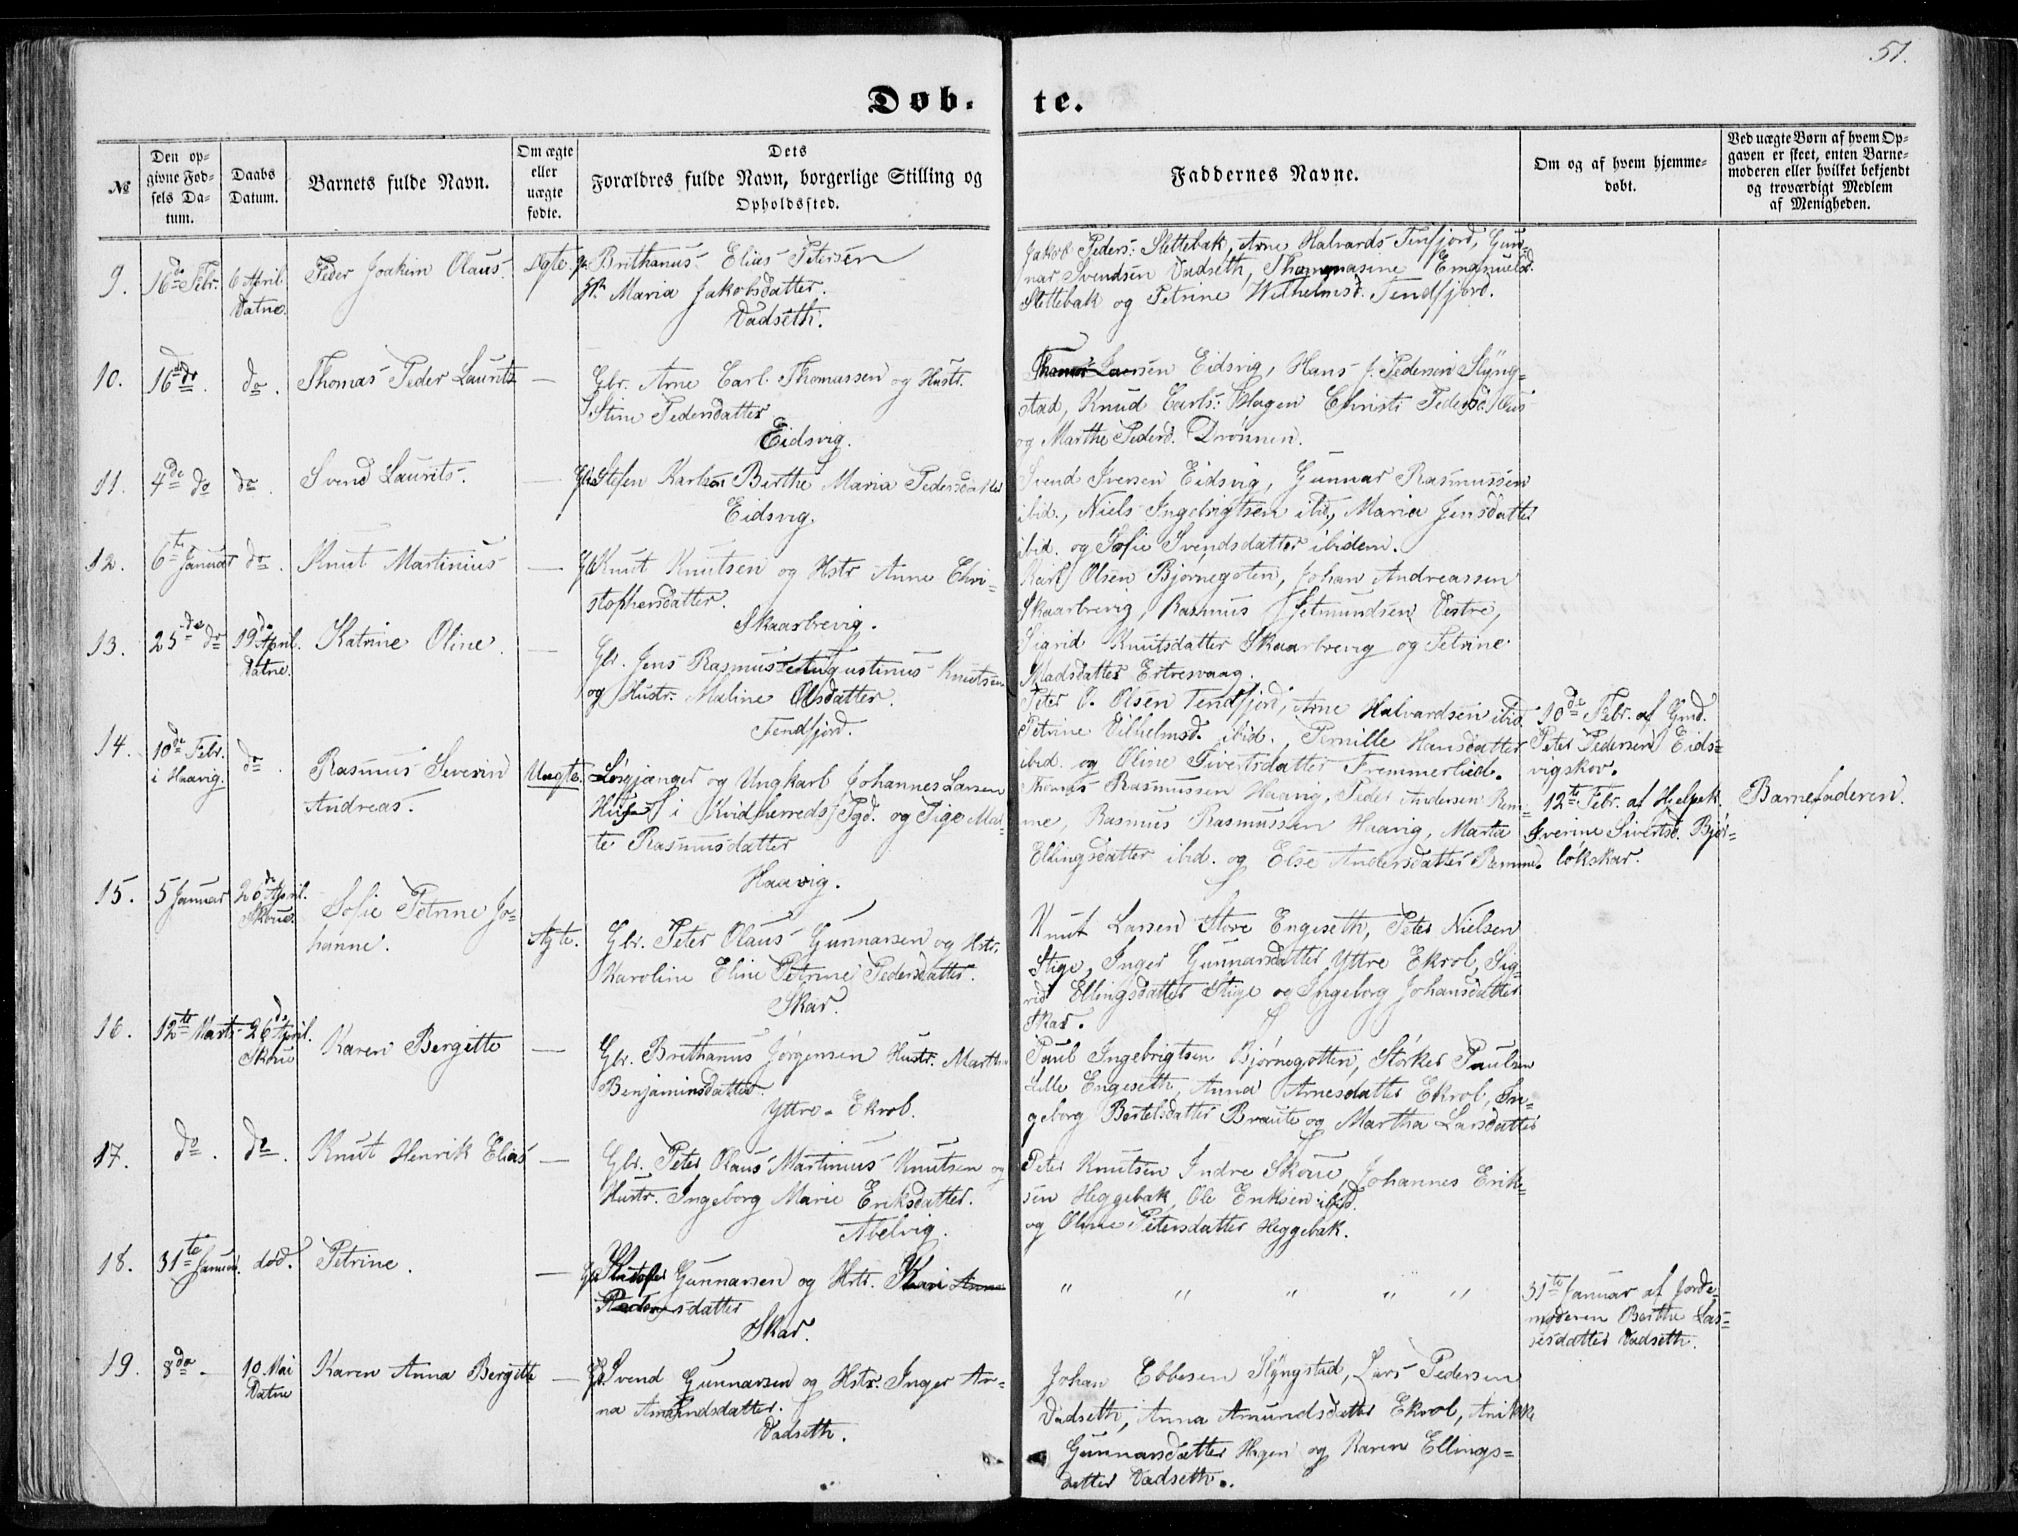 51.
Døb- te.
№
Den op-
givne Fød-
sels Da-
tum.
Daabs
Datum.
Barnets fulde Navn.
Om ægte
eller
uægte
fødte.
Dets
Forældres fulde Navn, borgerlige Stilling og
Opholdssted.
Faddernes Navne.
Om og af hvem hjemme-
døbt.
Ved uægte Børn af hvem Op-
gaven er skeet, enten Barne-
moderen eller hvilket bekjendt
og troværdigt Medlem
af Menigheden.
9.
16de Febr.
6 April
Vatne.
Peder Joakim Olaus.
Ægte
Brithanus Elias Petersen
Maria Jakobsdatter.
Vadseth.
Jakob Peders: Slettebak, Arne Halvards Tenfjord, Gun-
nar Svendsen Vadseth, Thommasine Emanuelsd.
Slettebak og Petrine Wilhelmsd. Tendfjord.
10.
16de do.
do.
Thomas Peder Laurits
—
Gbr. Arne Carl Thomassen og Hustr.
Stine Pedersdatter
Eidsvig.
Eidsvig, Hans J. Pedersen Slyng-
stad, Knud Carls: Hagen Christi Pedersd.
og Marthe Pedersd. Drønnen.
11.
4de do
do.
Svend Laurits.
—
Gbr. Stefen Karlsen Birthe Maria Pedersdatter
Eidsvig.
Svend Iversen Eidsvig, Gunnar Rasmussen
ibid., Niels Ingebrigtsen ibid., Maria Jensdatter
ibid. og Sofie Svendsdatter ibidem.
12.
6te Januar
do.
Knut Martinius
—
Gbr. Knut Knutsen og Hstr Anne Chri-
stophersdatter.
Skaarbrevig.
Olsen Bjørnegoten, Johan Andreassen
Skaarbrevig, Rasmus Vestre,
Sigrid Knutsdatter Skaarbrevig og Petrine
Madsdatter Ertresvaag.
13.
25de do
19de April.
Vatne.
Katrine Oline.
—
Gbr. Jens Rasmus Augustinus Knutsen
og Hustr. Maline Olsdatter.
Tendfjord.
Peter O. Olsen Tendfjord, Arne Halvardsen ibid.
Petrine Vilhelmsd. ibid., Pernille Hansdatter
ibid. og Oline Sivertsdatter Fremmerlied.
10de Febr. af Gmd.
Peter Pedersen Eids-
vigskov.
14.
10de Febr.
i Haavig.
do.
Rasmus Severin
Andreas.
Uægte.
Løsgjænger og Ungkarl Johannes Larsen
i Kvidherreds Pgd. og Pige Mar-
te Rasmusdatter
Haavig.
Thomas Rasmussen Haavig, Peder Andersen Rem-
me, Rasmus Rasmussen Haavig, Marta
Ellingsdatter ibid. og Else Andersdatter Remme.
12te Febr. af Hjelpek.
Iverine Sivertsd. Bjør-
løkskar.
Barnefaderen.
15.
5 Januar
20de April.
Skoue.
Sofie Petrine Jo-
hanne.
Ægte.
Gbr. Peter Olaus Gunnarsen og Hstr.
Karoline Eline Petrine Pedersdatter.
Skar.
Knut Larsen Store Engeseth, Peter Nielsen
Stige, Inger Gunnarsdatter Yttre Ekrol, Sig-
rid Ellingsdatter Stige og Ingeborg Johansdatter
Skar.
16.
12te Marts
26de April.
Skoue
Karen Bergitte
—
Gbr. Brithanus Jørgensen Hustr. Marthe
Benjaminsdatter.
Yttre-Ekrol.
Paul Ingebrigtsen Bjørnegotten, Størker Paulsen
Lille Engeseth, Anna Arnesdatter Ekrol, In-
geborg Bertelsdatter Braute og Martha Larsdatter
17.
do.
do.
Knut Henrik Elias
—
Gbr. Peter Olaus Martinius Knutsen og
Hustr. Ingeborg Marie Eriksdatter.
Abelvig.
Peter Knutsen Indre Skoue, Johannes Erik-
sen Heggebak, Ole Eriksen ibid.
og Oline Petersdatter Heggebak.
18.
31te Januar.
død.
Petrine.
—
Gunnarsen og Hstr.
Pedersdatter
Skar.
" " " " "
31te Januar af Jorde-
moderen Berthe Las-
sesdatter Vadseth.
19.
8de -
10 Mai
Vatne
Karen Anna Bergitte
—
Gbr. Svend Gunnarsen og Hstr. Inger An-
na Amundsdatter.
Vadseth.
Johan Ebbesen Slyngstad, Lars Pedersen
Vadseth, Anna Amundsdatter Ekrol, Anikke
Gunnarsdatter Hagen og Karen Ellings-
datter Vadseth.